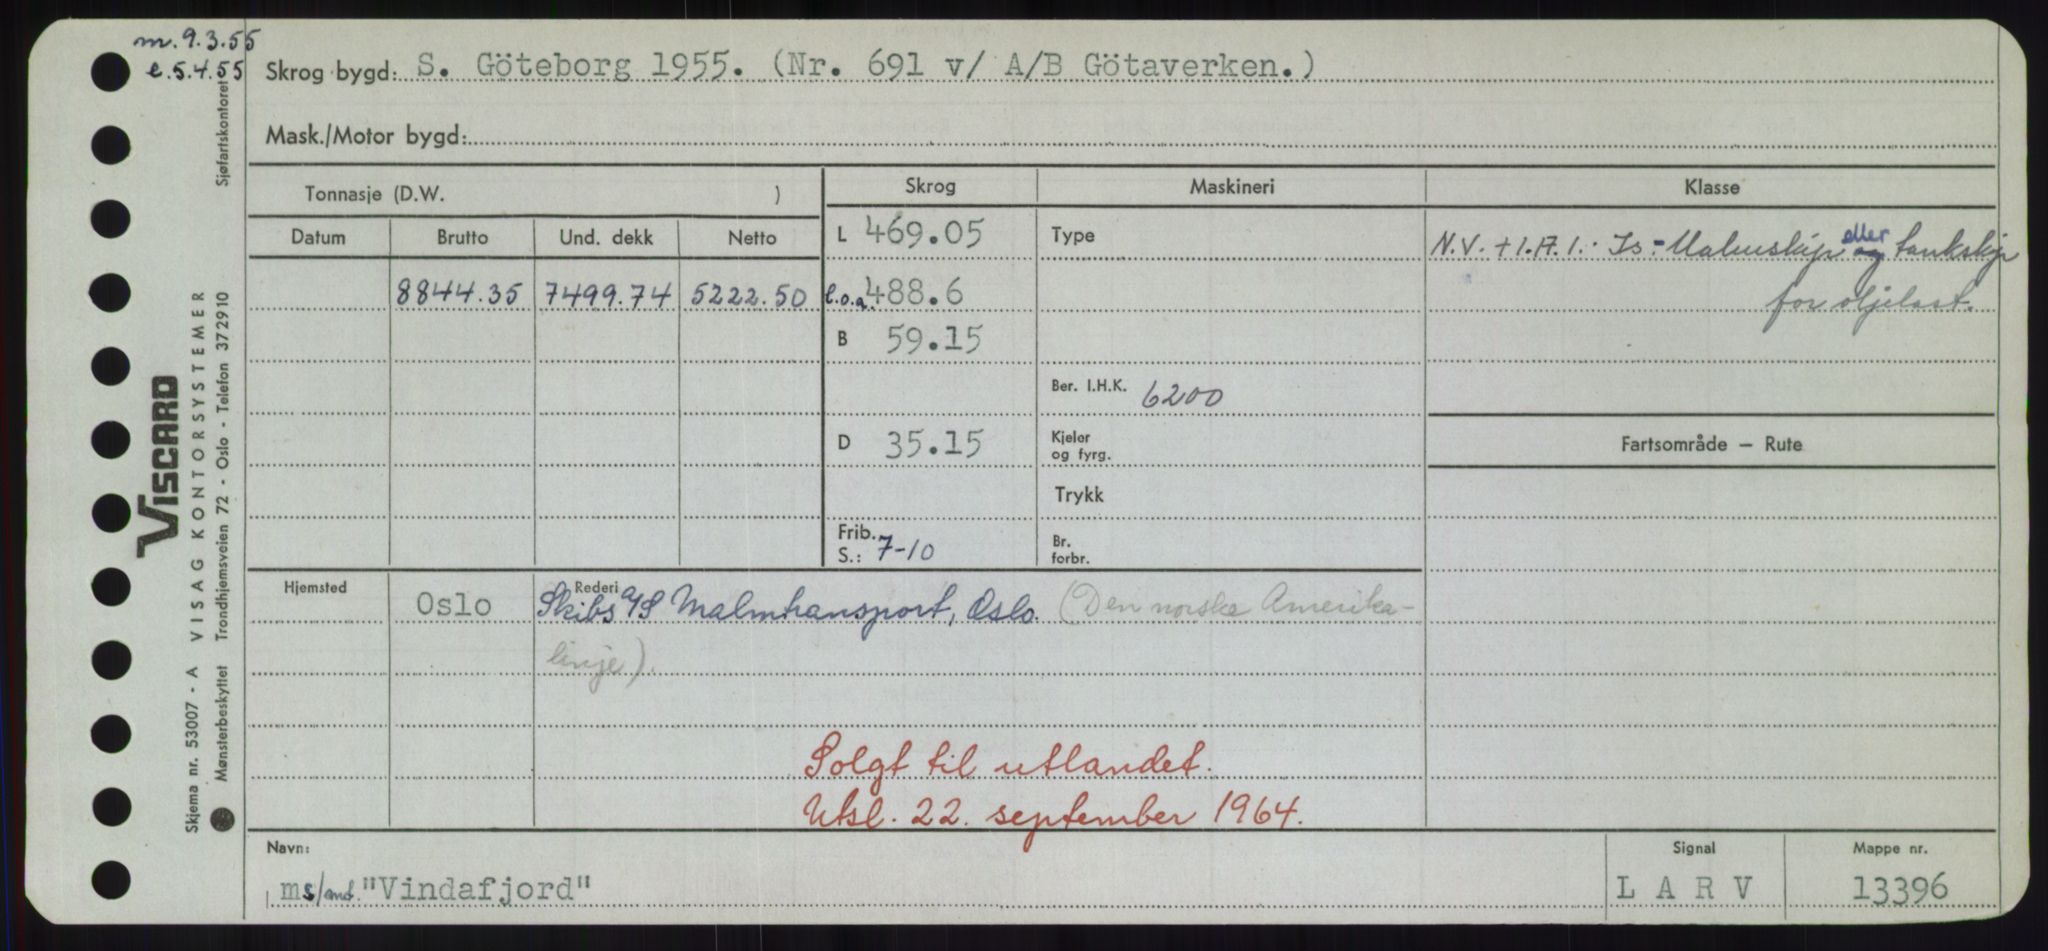 m. 9.3.55
e. 5.4.55
Skrog bygd: S. Göteborg 1955. (Nr. 691 v/ A/B Götaverken.)
Mask./Motor bygd:
Tonnasje (D.W. )
Skrog
Maskineri
Klasse
Datum
Brutto
Und. dekk
Netto
L 469.05
Type
N.V. + 1.A.1. Is - Malmskip eller og tankskip
8844.35 7499.74 5222.50
l.o.a. 488.6
for oljelast.
B 59.15
Ber. I.H.K. 6200
D 35.15
Kjeler
og fyrg.
Fartsområde – Rute
Trykk
Frib.
S.: 7-10
Br.
forbr.
Hjemsted
Oslo
Rederi
Skibs A/S Malmtransport, Oslo. (Den norske Amerika-
linje).
Solgt til utlandet.
Utsl. 22. september 1964.
Navn:
ms/mt. "Vindafjord"
Signal
L A R V
Mappe nr.
13396
VISCARD
Skjema nr. 53007 - A VISAG KONTORSYSTEMER
Mønsterbeskyttet Trondhjemsveien 72 - Oslo - Telefon 372910 Sjøfartskontoret